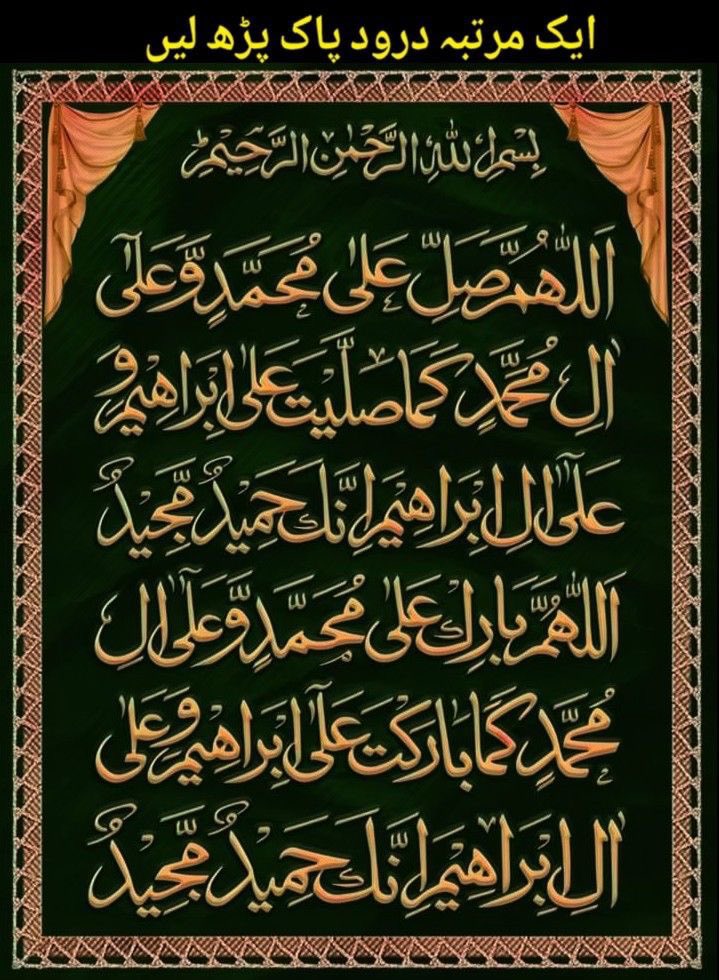 ایک مرتبہ درود پاک پڑھ لیں
بِسْمِ اللهِ الرَّحْمٰنِ الرَّحِيْمِ
اَللّٰهُمَّ صَلِّ عَلٰى مُحَمَّدٍ وَّعَلٰٓى
اٰلِ مُحَمَّدٍ كَمَا صَلَّيْتَ عَلٰٓى اِبْرَاهِيْمَ وَ
عَلٰٓى اٰلِ اِبْرَاهِيْمَ اِنَّكَ حَمِيْدٌ مَّجِيْدٌ
اَللّٰهُمَّ بَارِكْ عَلٰى مُحَمَّدٍ وَّعَلٰٓى اٰلِ
مُحَمَّدٍ كَمَا بَارَكْتَ عَلٰٓى اِبْرَاهِيْمَ وَعَلٰٓى
اٰلِ اِبْرَاهِيْمَ اِنَّكَ حَمِيْدٌ مَّجِيْدٌ